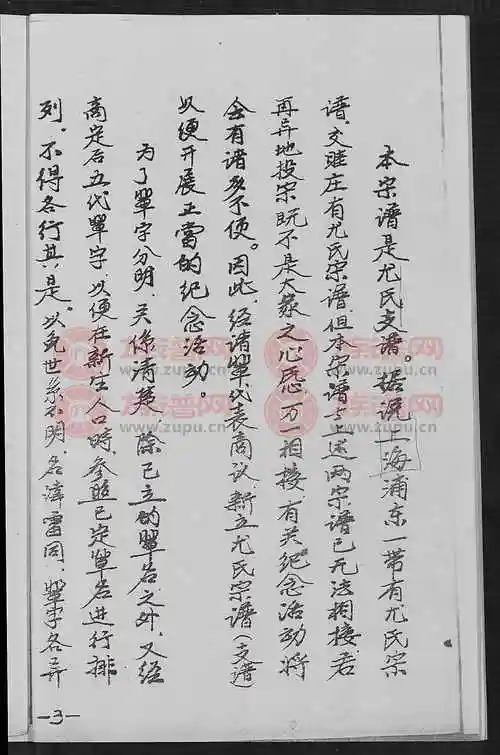 本宗谱是尤氏支谱。据说上海浦东一带有尤氏宗
谱，交睦庄有尤氏宗谱，但本宗谱与上述两宗谱已无法相接，若
再异地投宗既不是大家之心愿，万一相接，有关纪念活动将
会有诸多不便。因此，经诸辈代表商议，新立尤氏宗谱（支谱
以便开展正當的纪念活动。
为了輩字分明，关係清楚，除已立的輩名之外，又经
商定后五代輩字，以便在新生人口時，参照已定輩名进行排
列，不得各行其是。以免世系不明，名諱雷同，輩字各异
-3-
族谱网
www.zupu.cn
族谱网
www.zupu.cn
族谱网
www.zupu.cn
族谱网
www.zupu.cn